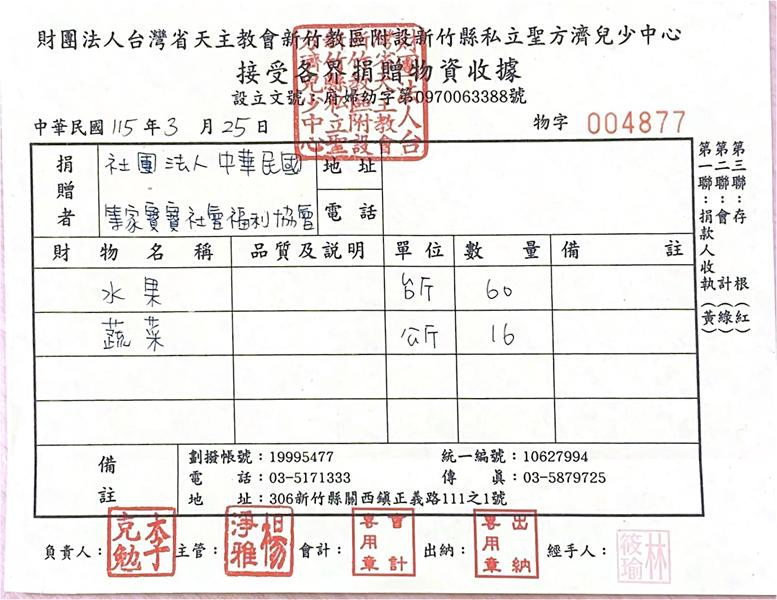 財團法人台灣省天主教會新竹教區附設新竹縣私立聖方濟兒少中心
接受各界捐贈物資收據
設立文號：府婦幼字第0970063388號
中華民國 115 年 3 月 25 日
物字 004877
捐贈者
社團法人中華民國
寶寶社會福利協會
地址
電話
財物名稱 品質及說明 單位 數量 備註
水果 台斤 60
蔬菜 公斤 16
備註
劃撥帳號：19995477 統一編號：10627994
電話：03-5171333 傳真：03-5879725
地址：306新竹縣關西鎮正義路111之1號
負責人： 李克勉 主管： 楊淨雅 會計： 會計專用章 出納： 出納專用章 經手人： 林筱瑜
第三聯：存根（紅）
第二聯：會計（綠）
第一聯：捐款人收執（黃）
財團法人台灣省天主教會新竹教區附設新竹縣私立聖方濟兒少中心